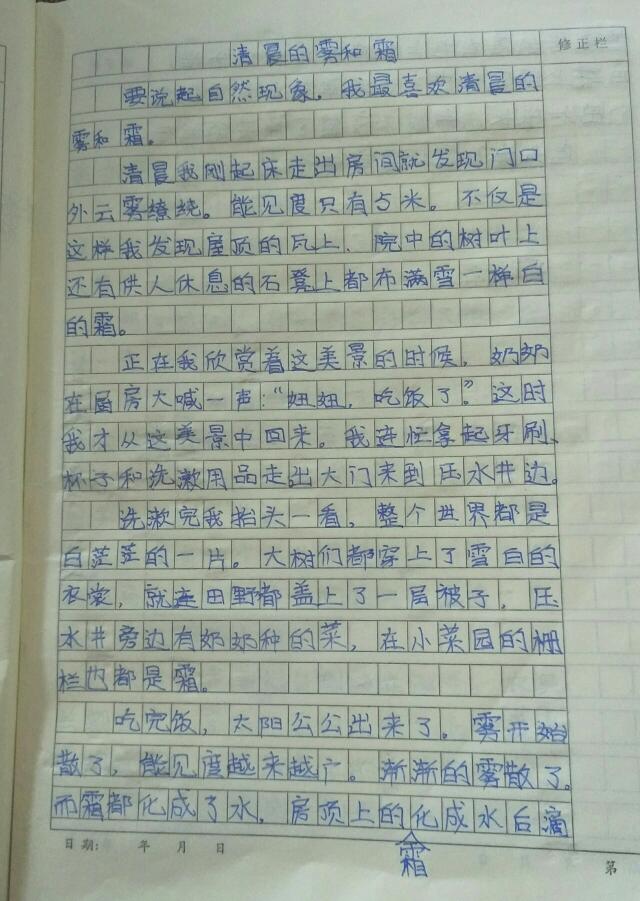 清晨的雾和霜
修正栏
要说起自然现象，我最喜欢清晨的
雾和霜。
清晨我刚起床走出房间就发现门口
外云雾缭绕。能见度只有5米。不仅是
这样我发现屋顶的瓦上、院中的树叶上
还有供人休息的石凳上都布满雪一样白
的霜。
正在我欣赏着这美景的时候，奶奶
在厨房大喊一声：“妞妞，吃饭了。”这时
我才从这美景中回来。我连忙拿起牙刷、
杯子和洗漱用品走出大门来到压水井边。
洗漱完我抬头一看，整个世界都是
白茫茫的一片。大树们都穿上了雪白的
衣裳，就连田野都盖上了一层被子，压
水井旁边有奶奶种的菜，在小菜园的栅
栏也都是霜。
吃完饭，太阳公公出来了。雾开始
散了，能见度越来越广。渐渐的雾散了。
而霜都化成了水，房顶上的霜化成水后滴
日期： 年 月 日
第